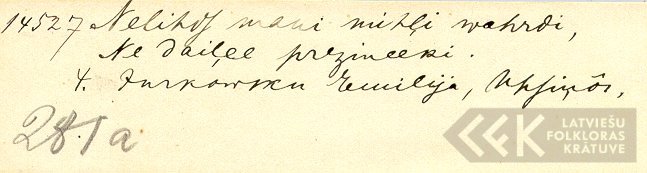 14527 Nelihdſ mani mihļi wahrdi,
Ne daiļee prezineeki.
4. Turkowsku Emilija,
281a
LATVIEŠU
FOLKLORAS
KRĀTUVE